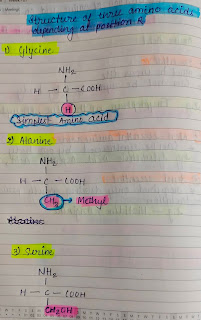 Structure of three amino acids
depending at position R
1) Glycine
NH2
H – C – COOH
H
Simplest Amino acid
2) Alanine
NH2
H – C – COOH
CH3 → Methyl
3) Serine
NH2
H – C – COOH
CH2OH